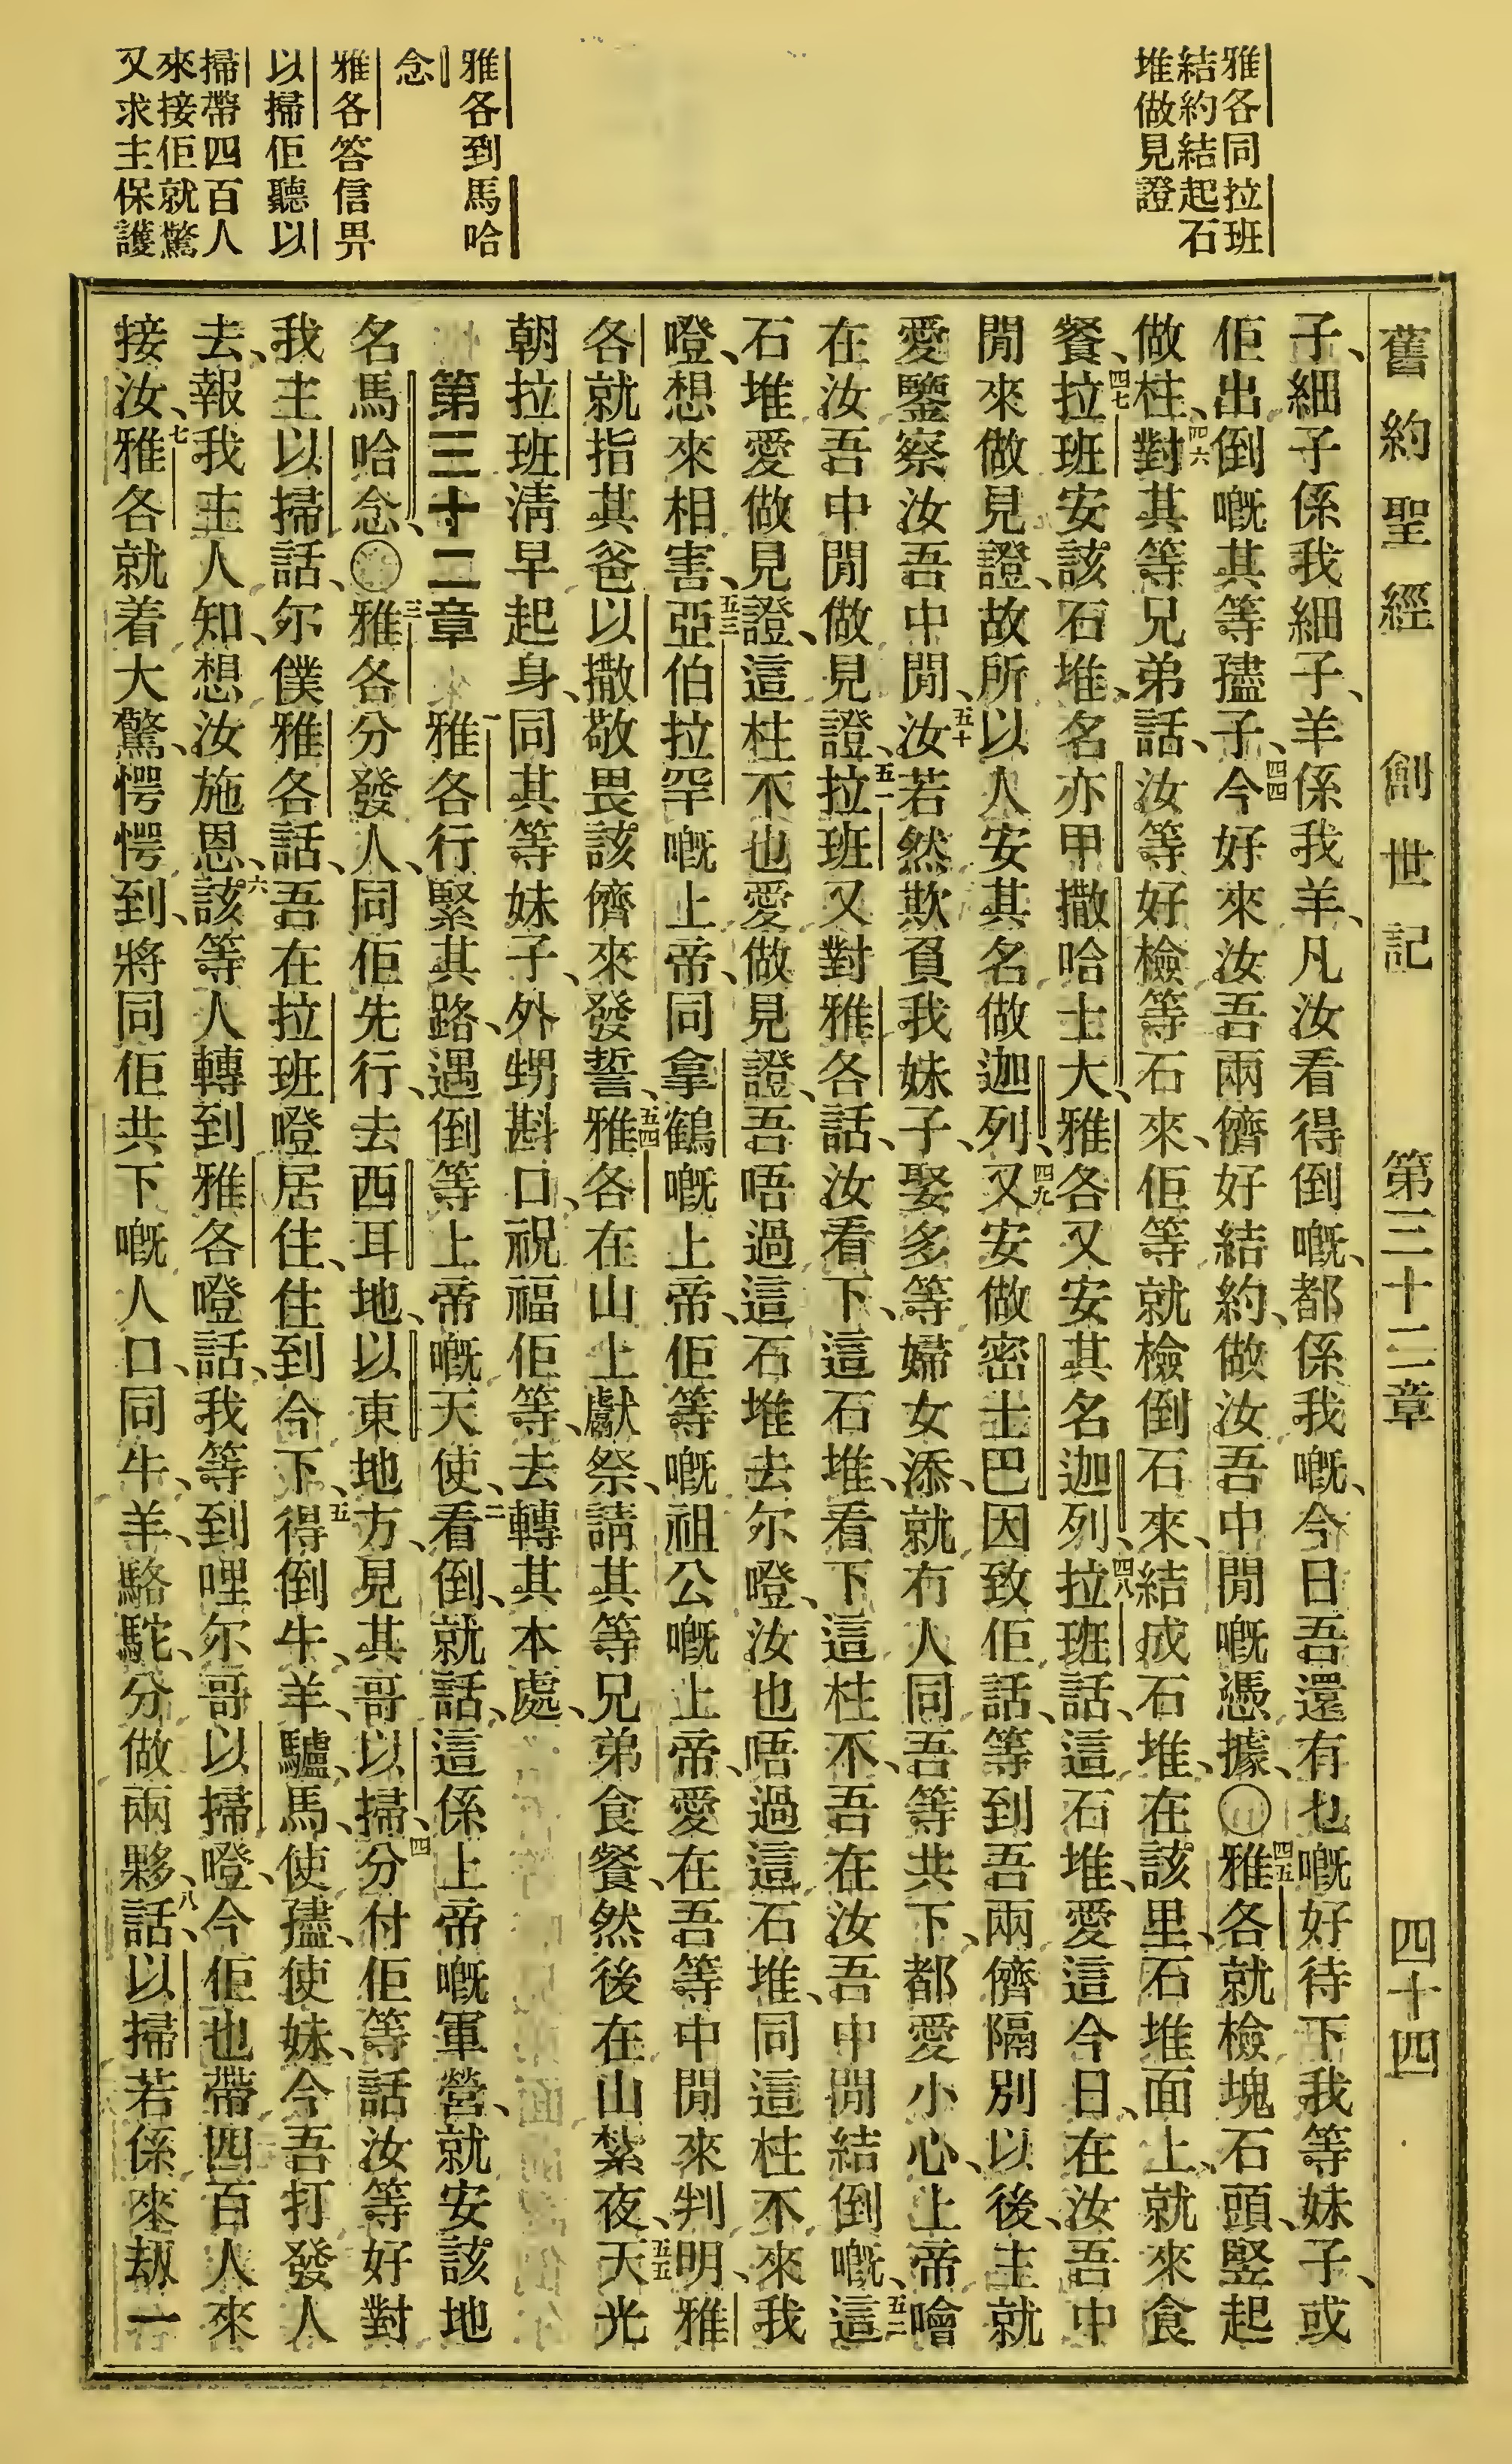 舊約聖經 創世記 第三十二章 四十四
雅各同拉班
結約結起石
堆做見證
雅各到馬哈
念
雅各答信畀
以掃佢聽以
掃帶四百人
來接佢就驚
又求主保護
子、細子係我細子、羊係我羊、凡汝看得倒嘅、都係我嘅、今日吾還有乜嘅好待下我等妹子、或
佢出倒嘅其等孻子、四四今好來汝吾兩儕好結約、做汝吾中間嘅憑據、〇四五雅各就檢塊石頭、竪起
做柱、四六對其等兄弟話、汝等好檢等石來、佢等就檢倒石來、結成石堆、在該里、石堆面上、就來食
餐、四七拉班安該石堆、名亦甲撒哈士大、雅各又安其名迦列、四八拉班話、這石堆、愛這今日、在汝吾中
間來做見證、故所以人安其名做迦列、四九又安做密士巴因致佢話、等到吾兩儕隔別以後、主就
愛鑒察汝吾中間、五十汝若然欺負我妹子、娶多等婦女添、就冇人同吾等共下、都愛小心、上帝噲
在汝吾中間做見證、五一拉班又對雅各話、汝看下、這石堆、看下這柱不、吾在汝吾中間結倒嘅、五二這
石堆愛做見證、這柱不也愛做見證、吾唔過這石堆去尔嶝、汝也唔過這石堆、同這柱不來我
嶝、想來相害、五三亞伯拉罕嘅上帝、同拿鶴嘅上帝、佢等嘅祖公嘅上帝、愛在吾等中間來判明、雅
各就指其爸以撒敬畏該儕來發誓、五四雅各在山上獻祭、請其等兄弟食餐、然後在山紮夜、五五天光
朝拉班淸早起身、同其等妹子、外甥斟口、祝福佢等、去轉其本處、
第三十二章 一雅各行緊其路、遇倒等上帝嘅天使、二看倒、就話、這係上帝嘅軍營、就安該地
名馬哈念、〇三雅各分發人、同佢先行、去西耳地、以東地方、見其哥以掃、四分付佢等話汝等好對
我主以掃話、尔僕雅各話、吾在拉班嶝居住、住到今下、五得倒牛、羊、驢、馬、使孻、使妹、今吾打發人
去、報我主人知、想汝施恩、六該等人轉到雅各嶝話、我等到哩尔哥以掃嶝、今佢也帶四百人來
接汝、七雅各就着大驚、愕愕到、將同佢共下嘅人口、同牛、羊、駱駝、分做兩夥、八話、以掃若係來刼一